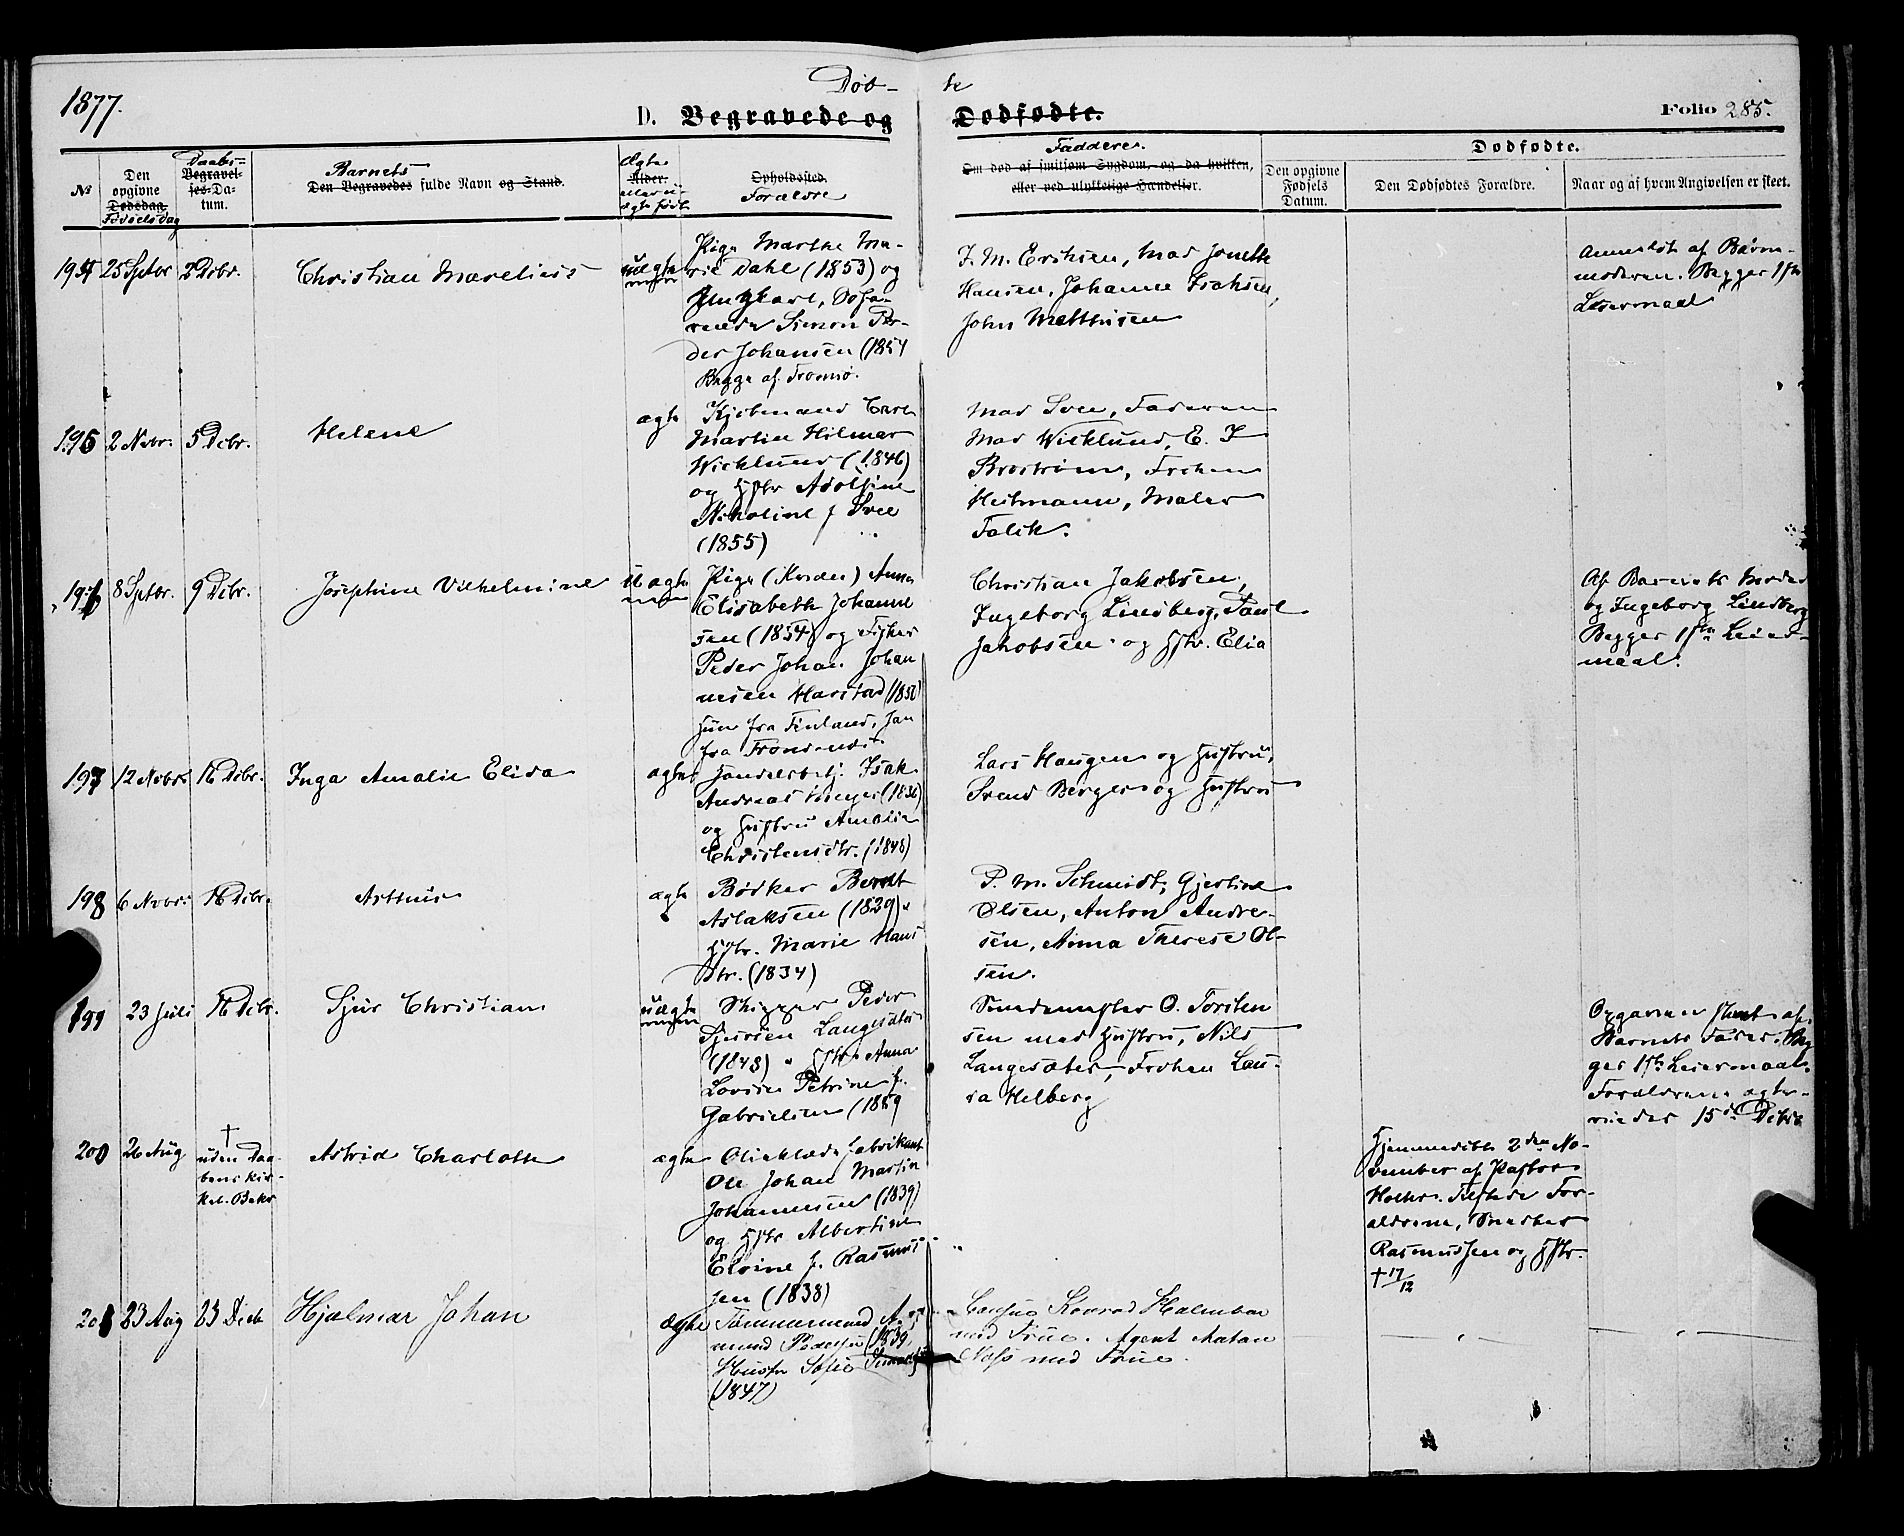 1877.
Døb-
te
D. Begravede og
Dødfødte.
Folio 285.
No
Den opgivne Dødsdag.
Fødselsdag
Daabs-
Begravel-
ses-Da-
tum.
Barnets
Den Begravedes fulde Navn og Stand.
Ægte
Alder.
eller u-
ægte født
Opholdssted.
Forældre
Faddere.
Om død af smitsom Sygdom, og da hvilken,
eller ved ulykkelige Hændelser.
Dødfødte.
Den opgivne
Fødsels
Datum.
Den Dødfødtes Forældre.
Naar og af hvem Angivelsen er skeet.
195 25 Sptbr 2 Dcbr.
Christian Marelius
uægte
Pige Marthe Ma-
rie Dahl (1853) og
Ungkarl, Søfa-
rende Simon Pe-
der Johansen (1854
Begge af Tromsø.
J. M. Eriksen, Mad Jonette
Hansen, Johanne Isaksen,
John Matthisen
Anmeldt af Barne-
moderen. Begges 1ste
Leiermaal
195 2 Nvbr. 5 Dcbr.
Helene
ægte
Kjøbmand Carl
Martin Hilmar
Wicklund (1846)
og Hstr Adolfine
Nikoline f
(1855)
Mad Faderen
Mad Wicklund, E. J
Brostrøm, Frøken
Heitmann, Maler
Falck.
196 8 Sptbr. 9 Dcbr.
Josephine Vilhelmine
uægte
Pige (Kvæn) Anna
Elisabeth Johanne
sen (1854) og Fisker
Peder Johan Johan
nesen Harstad (1850
Hun fra Finland, han
fra Trondenæs
Christian Jakobsen,
Ingeborg Lindberg, Paul
Jakobsen og Hstr. Elia
Af Barnets Moder
og Ingeborg Lindberg
Begges 1ste Leier-
maal.
197 12 Nvbr. 16 Dcbr.
Inga Amalie Elida
ægte
Handelsbetj. Isak
Andreas Meyer (1836)
og Hustru Amalia
Christensdtr. (1848)
Lars Haugen og Hustru,
Svend Berger og Hustru
198 6 Nvbr. 16 Dcbr.
Arthur
ægte
Bødker Berndt
Aslaksen (1829) "
Hstr. Marie Hans
dtr. (1834)
P. M. Schmidt, Gjertine
Olsen, Anton Andre-
sen, Anna Therese Ol-
sen.
199 23 Juli 16 Dcbr.
Sjur Christian
uægte
Skipper Peder
Sjursen Langesæter
(1848) " Hstr Anna
Lovise Petrine f.
Gabrielsen (1859
O. Torsten
sen med Hustru, Nils
Langesæter, Frøken Lau-
ra Helberg
af
Barnets Fader. Beg
ges 1ste Leiermaal.
Forældrene ægte-
viedes 15de Dcbr
200 26 Aug
†
uden Daa-
bens kir-
kel. Bekr
Astrid Charlotte
ægte
Olieklædefabrikant
Ole Johan Martin
Johannesen (1839)
og Hstr Albertine
Elvine f. Rasmus-
sen (1838)
"
Hjemmedøbt 2den No-
vember af Pastor
Tilstede For-
ældrene,
Rasmussen og Hstr.
† 17/12
201 23 Aug 23 Decb
Hjalmar Johan
ægte
Tømmermand A
mund Pedersen (1839)
Hustru Sofie
(1847)
Konrad Holmboe
med Frue. Agent
med Frue.